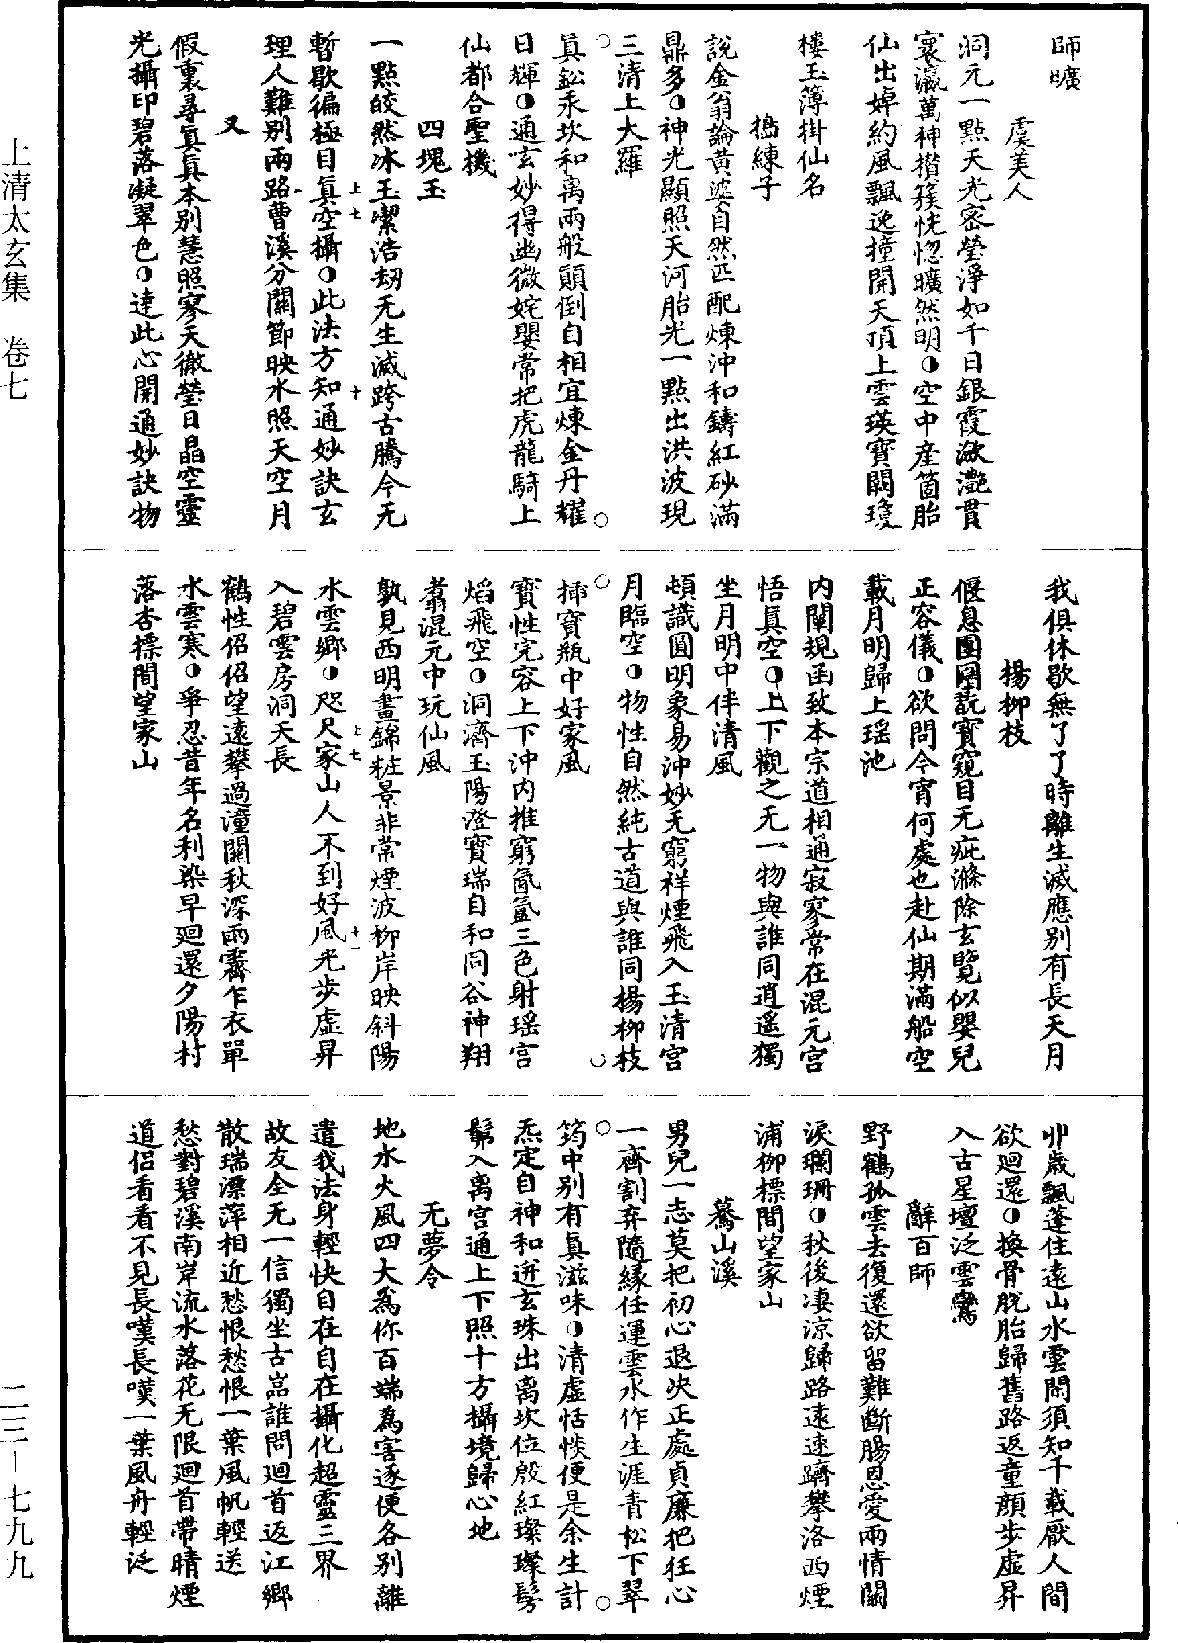 師曠
虞美人
洞元一點天光密瑩淨如千日銀霞瀲灧貫
寰瀛萬神攢簇恍惚曠然明◑空中産箇胎
仙出婥約風飄逸撞開天頂上雲瑛寶闕瓊
樓玉簿掛仙名
搗練子
說金翁論黃婆自然匹配煉沖和鑄紅砂滿
鼎多◑神光顯照天河胎光一點出洪波現
三清上大羅
○
真鈆汞坎和离兩般顛倒自相宜煉金丹耀
日輝◑通玄妙得幽微姹嬰常把虎龍騎上
仙都合聖機
○
四塊玉
一點皎然冰玉潔浩劫无生滅跨古騰今无
暫歇徧極目真空攝◑此法方知通妙訣玄
理人難別兩路曹溪分關節映水照天空月
又
假裏尋真真本別慧照寥天徹瑩日晶空靈
光攝印碧落凝翠色◑達此心開通妙訣物
上七
十
我俱休歇無了了時離生滅應别有長天月
楊柳枝
偃息團團翫寶窺目无疵滌除玄覽似嬰兒
正容儀◑欲問今宵何處也赴仙期滿船空
載月明歸上瑶池
内闡規函致本宗道相通寂寥常在混元宫
悟真空◑上下觀之无一物與誰同逍遥獨
坐月明中伴清風
頓識圓明象易沖妙无窮祥煙飛入玉清宫
月臨空◑物性自然純古道與誰同楊柳枝
○
揷寶瓶中好家風
寳性完容上下沖内推窮氤氲三色射瑶宫
焰飛空◑洞濟玉陽澄寳瑞自和同谷神翔
翥混元中玩仙風
孰見西明晝錦粧景非常煙波柳岸映斜陽
水雲鄉◑咫尺家山人不到好風光步虛昇
入碧雲房洞天長
鶴性佋佋望遠攀過潼關秋深雨霽乍衣單
水雲寒◑爭忍昔年名利染早廻還夕陽村
落杏標間望家山
上七
十一
丱歳飄蓬住遠山水雲閑須知千載厭人間
欲廻還◑換骨脫胎歸舊路返童顔步虛昇
入古星壇泛雲鸞
辭百師
野鶴孤雲去復還欲留難斷腸恩愛兩情關
淚瓓珊◑秋後凄涼歸路遠速躋攀洛西煙
浦柳標間望家山
驀山溪
男兒一志莫把初心退決正處貞廉把狂心
一齊割弃隨縁任運雲水作生涯青松下翠
○
筠中别有真滋味◑清虛恬惔便是余生計
炁定自神和迸玄珠出离坎位殷紅璨璨髣
髴入离宫通上下照十方攝境歸心地
○
无夢令
地水火風四大為你百端為害逐便各别離
遣我法身輕快自在自在攝化超靈三界
故友全无一信獨坐古嵓誰問廻首返江鄉
散瑞漂萍相近愁恨愁恨一葉風帆輕送
愁對碧溪南岸流水落花无限廻首帶晴煙
道侣看看不見長嘆長嘆一葉風舟輕泛
上清太玄集　卷七
二三—七九九